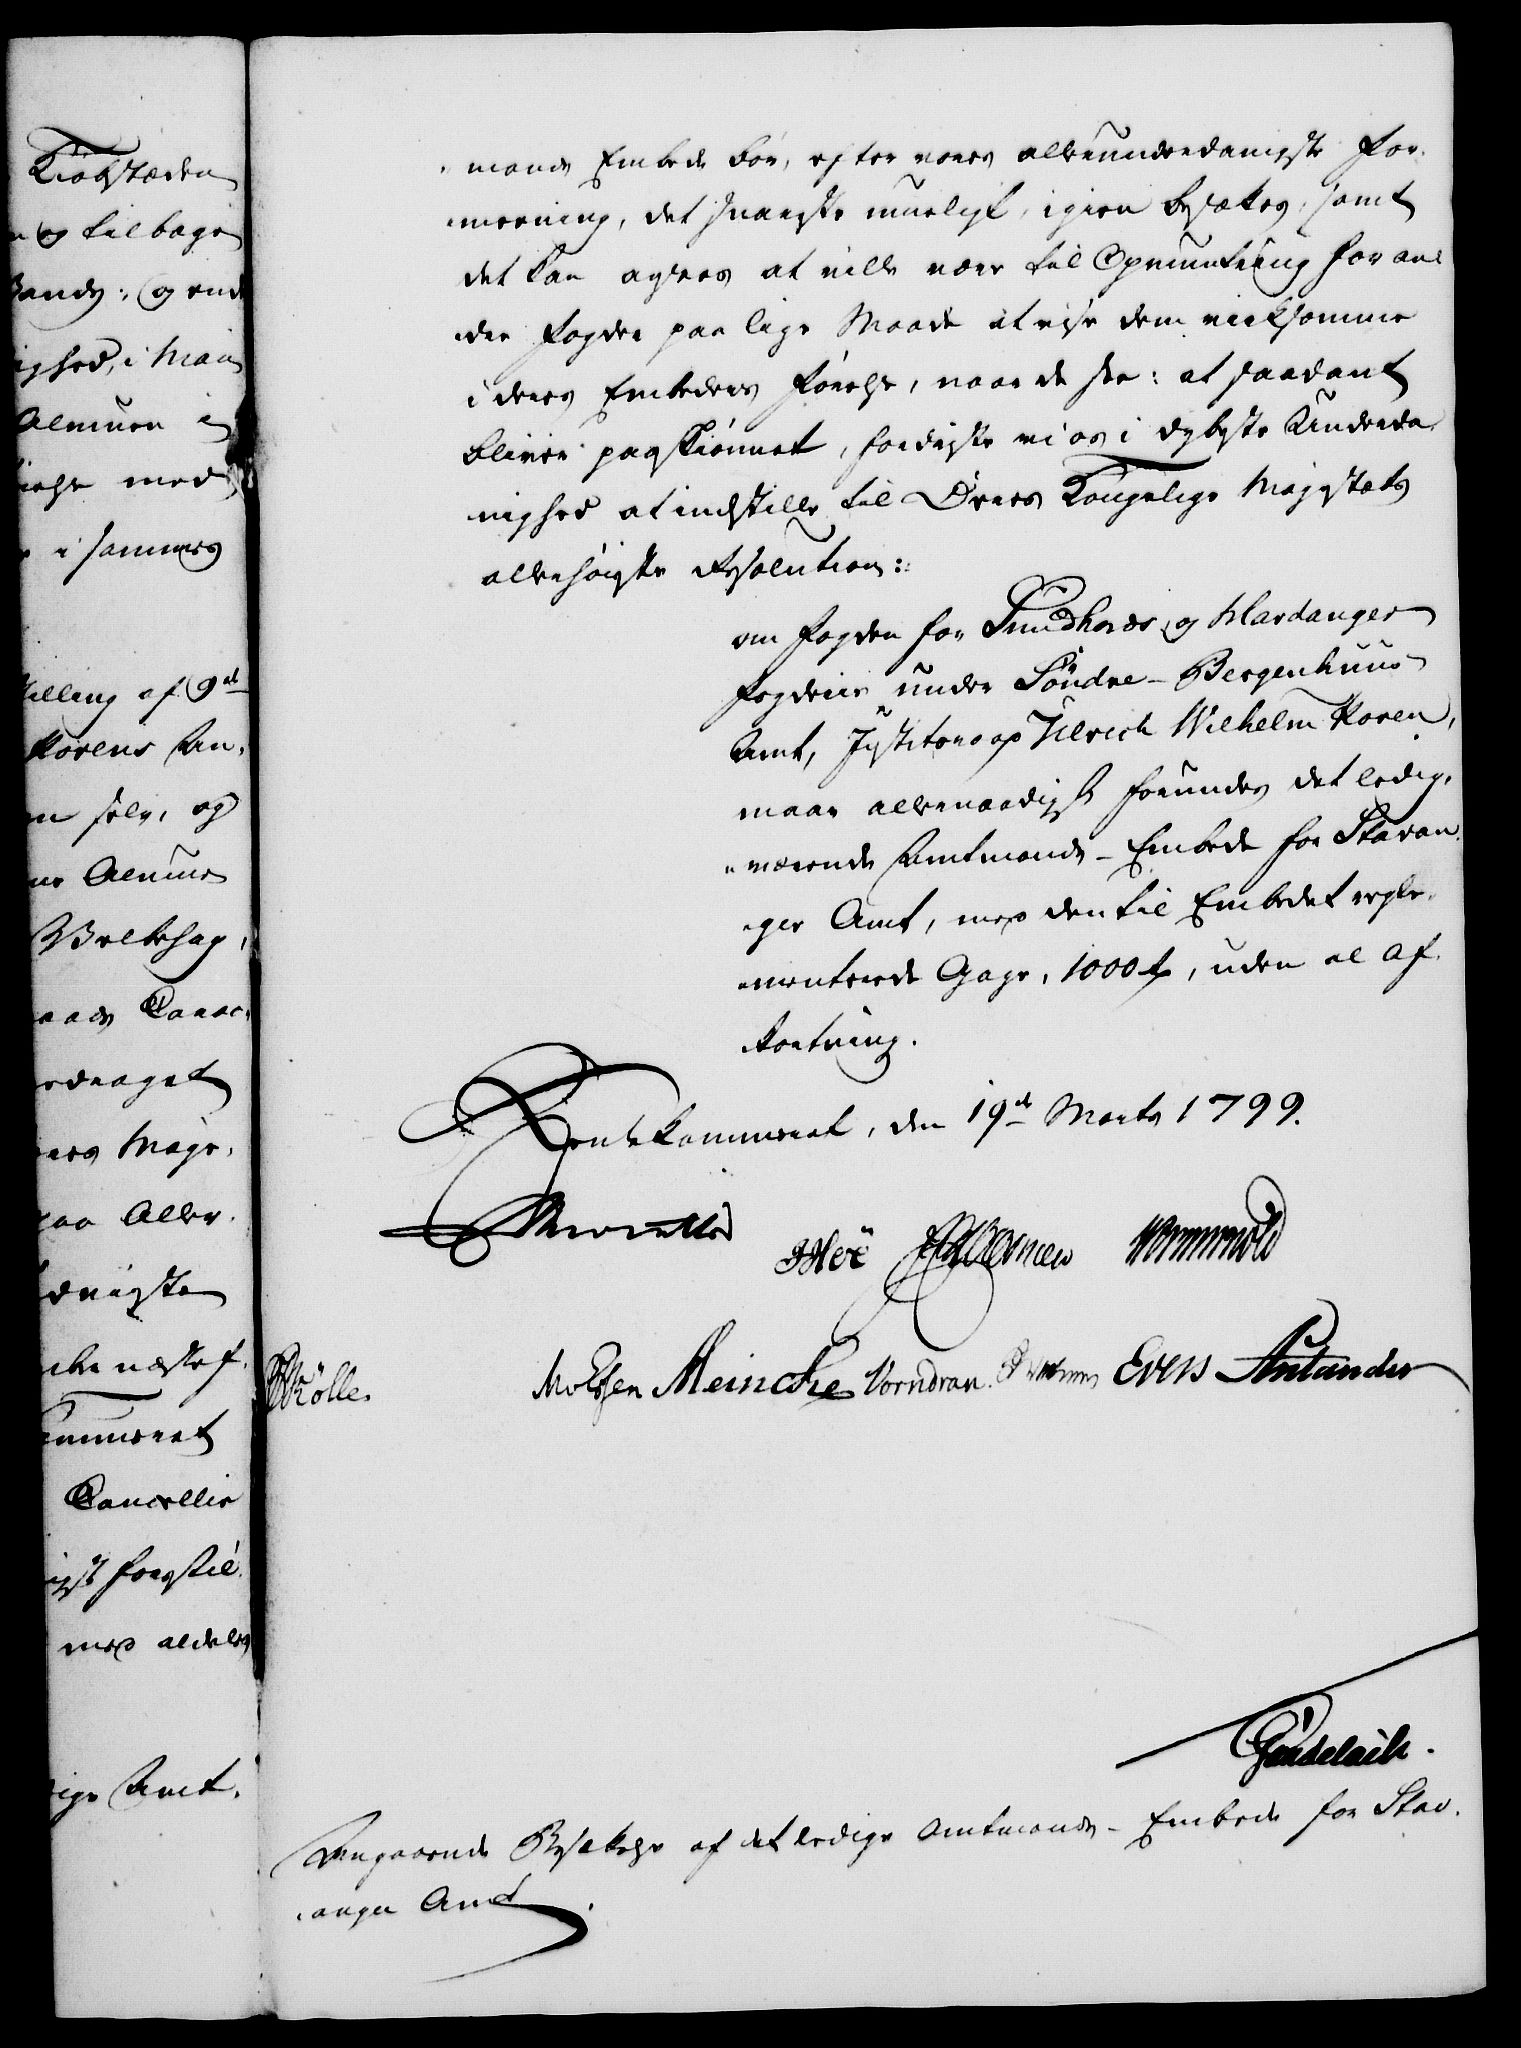 Kiøbstæden
og tilbage
Bande :/ og end
ighed, i Man
Almuen i
ielse med
i sammes
tilling af 9de
Korens An-
selv, og
Almue
Velbehag,
Cancel-
draget
Maje-
paa Aller-
næstaf-
Kammeret
Cancellie
igst forestil-
med aldeles
dige Amt-
mands Embede bør, efter vores allerunderdanigste For-
meening, det snareste mueligt, igien besættes, samt
det kan agtes at ville være til Opmuntring for an-
dre Fogder paa lige Maade at vise dem virksomme
i deres Embeders Førelse, naar de see: at saadant
bliver paaskiønnet, fordriste vi os i dybeste Underda-
nighed at indstille til Deres Kongelige Majestæts
allerhøieste Resolution:
om Fogden for Sundhords og Hardanger
Fogderie under Søndre-Bergenhuus
Amt, Justitsraad Ulrich Wilhelm Koren,
maae allernaadigst forundes det ledig-
værende Amtmands-Embede for Stavan-
ger Amt, med den til Embedet regle-
menterede Gage, 1000 rd, uden al Af-
kortning.
Rentekammeret, den 19de Marts 1799.
Wormskiold
Rølle. Meincke Vorndran. Evers Antander
Gündelach.
Angaaende Besættelse af det ledige Amtmands-Embede for Stav-
anger Amt.